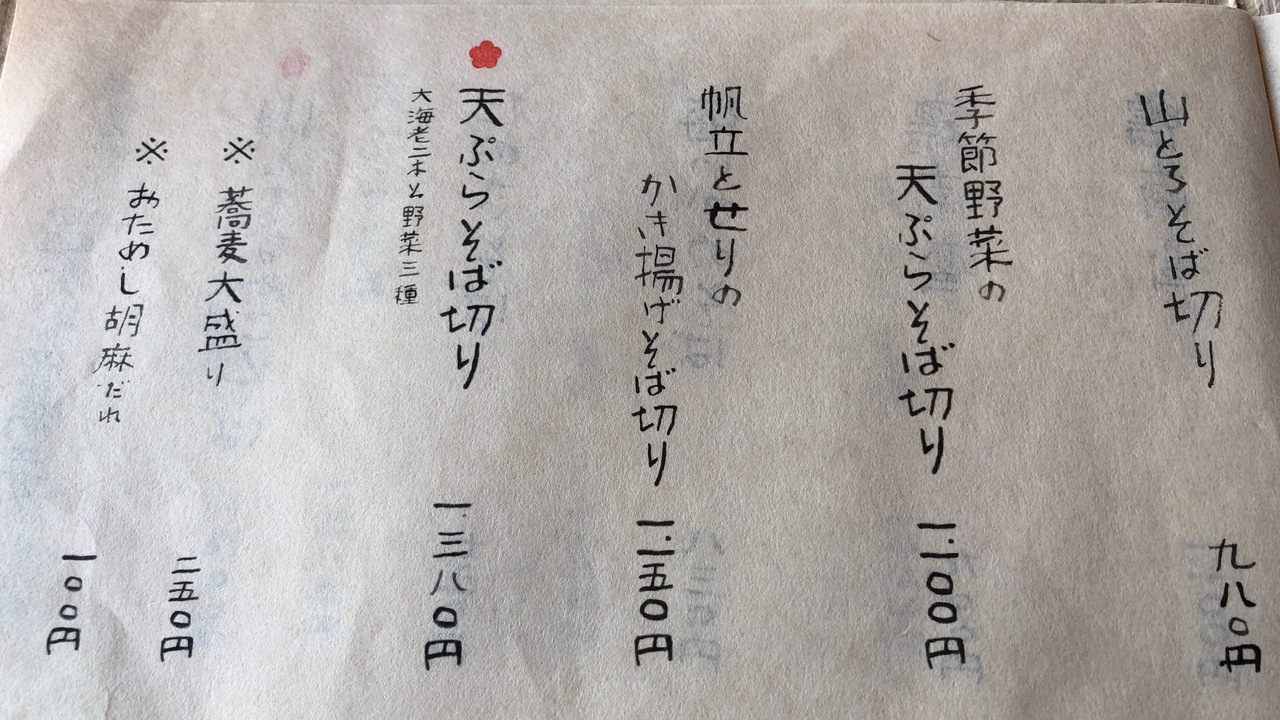 山とろそば切り 九八〇円
季節野菜の
天ぷらそば切り 一.一〇〇円
帆立とせりの
かき揚げそば切り 一.一五〇円
天ぷらそば切り 一.三八〇円
大海老二本と野菜三種
※蕎麦大盛り 二五〇円
※おためし胡麻だれ 一〇〇円